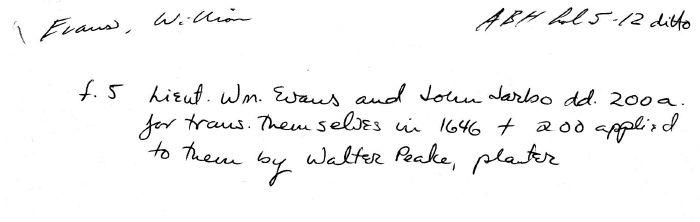 Evans, William ABH Lol 5-12 ditto
f. 5 Lieut. Wm. Evans and John Jarbo dd. 200 a.
for trans. themselves in 1646 + 200 applied
to them by Walter Peake, planter